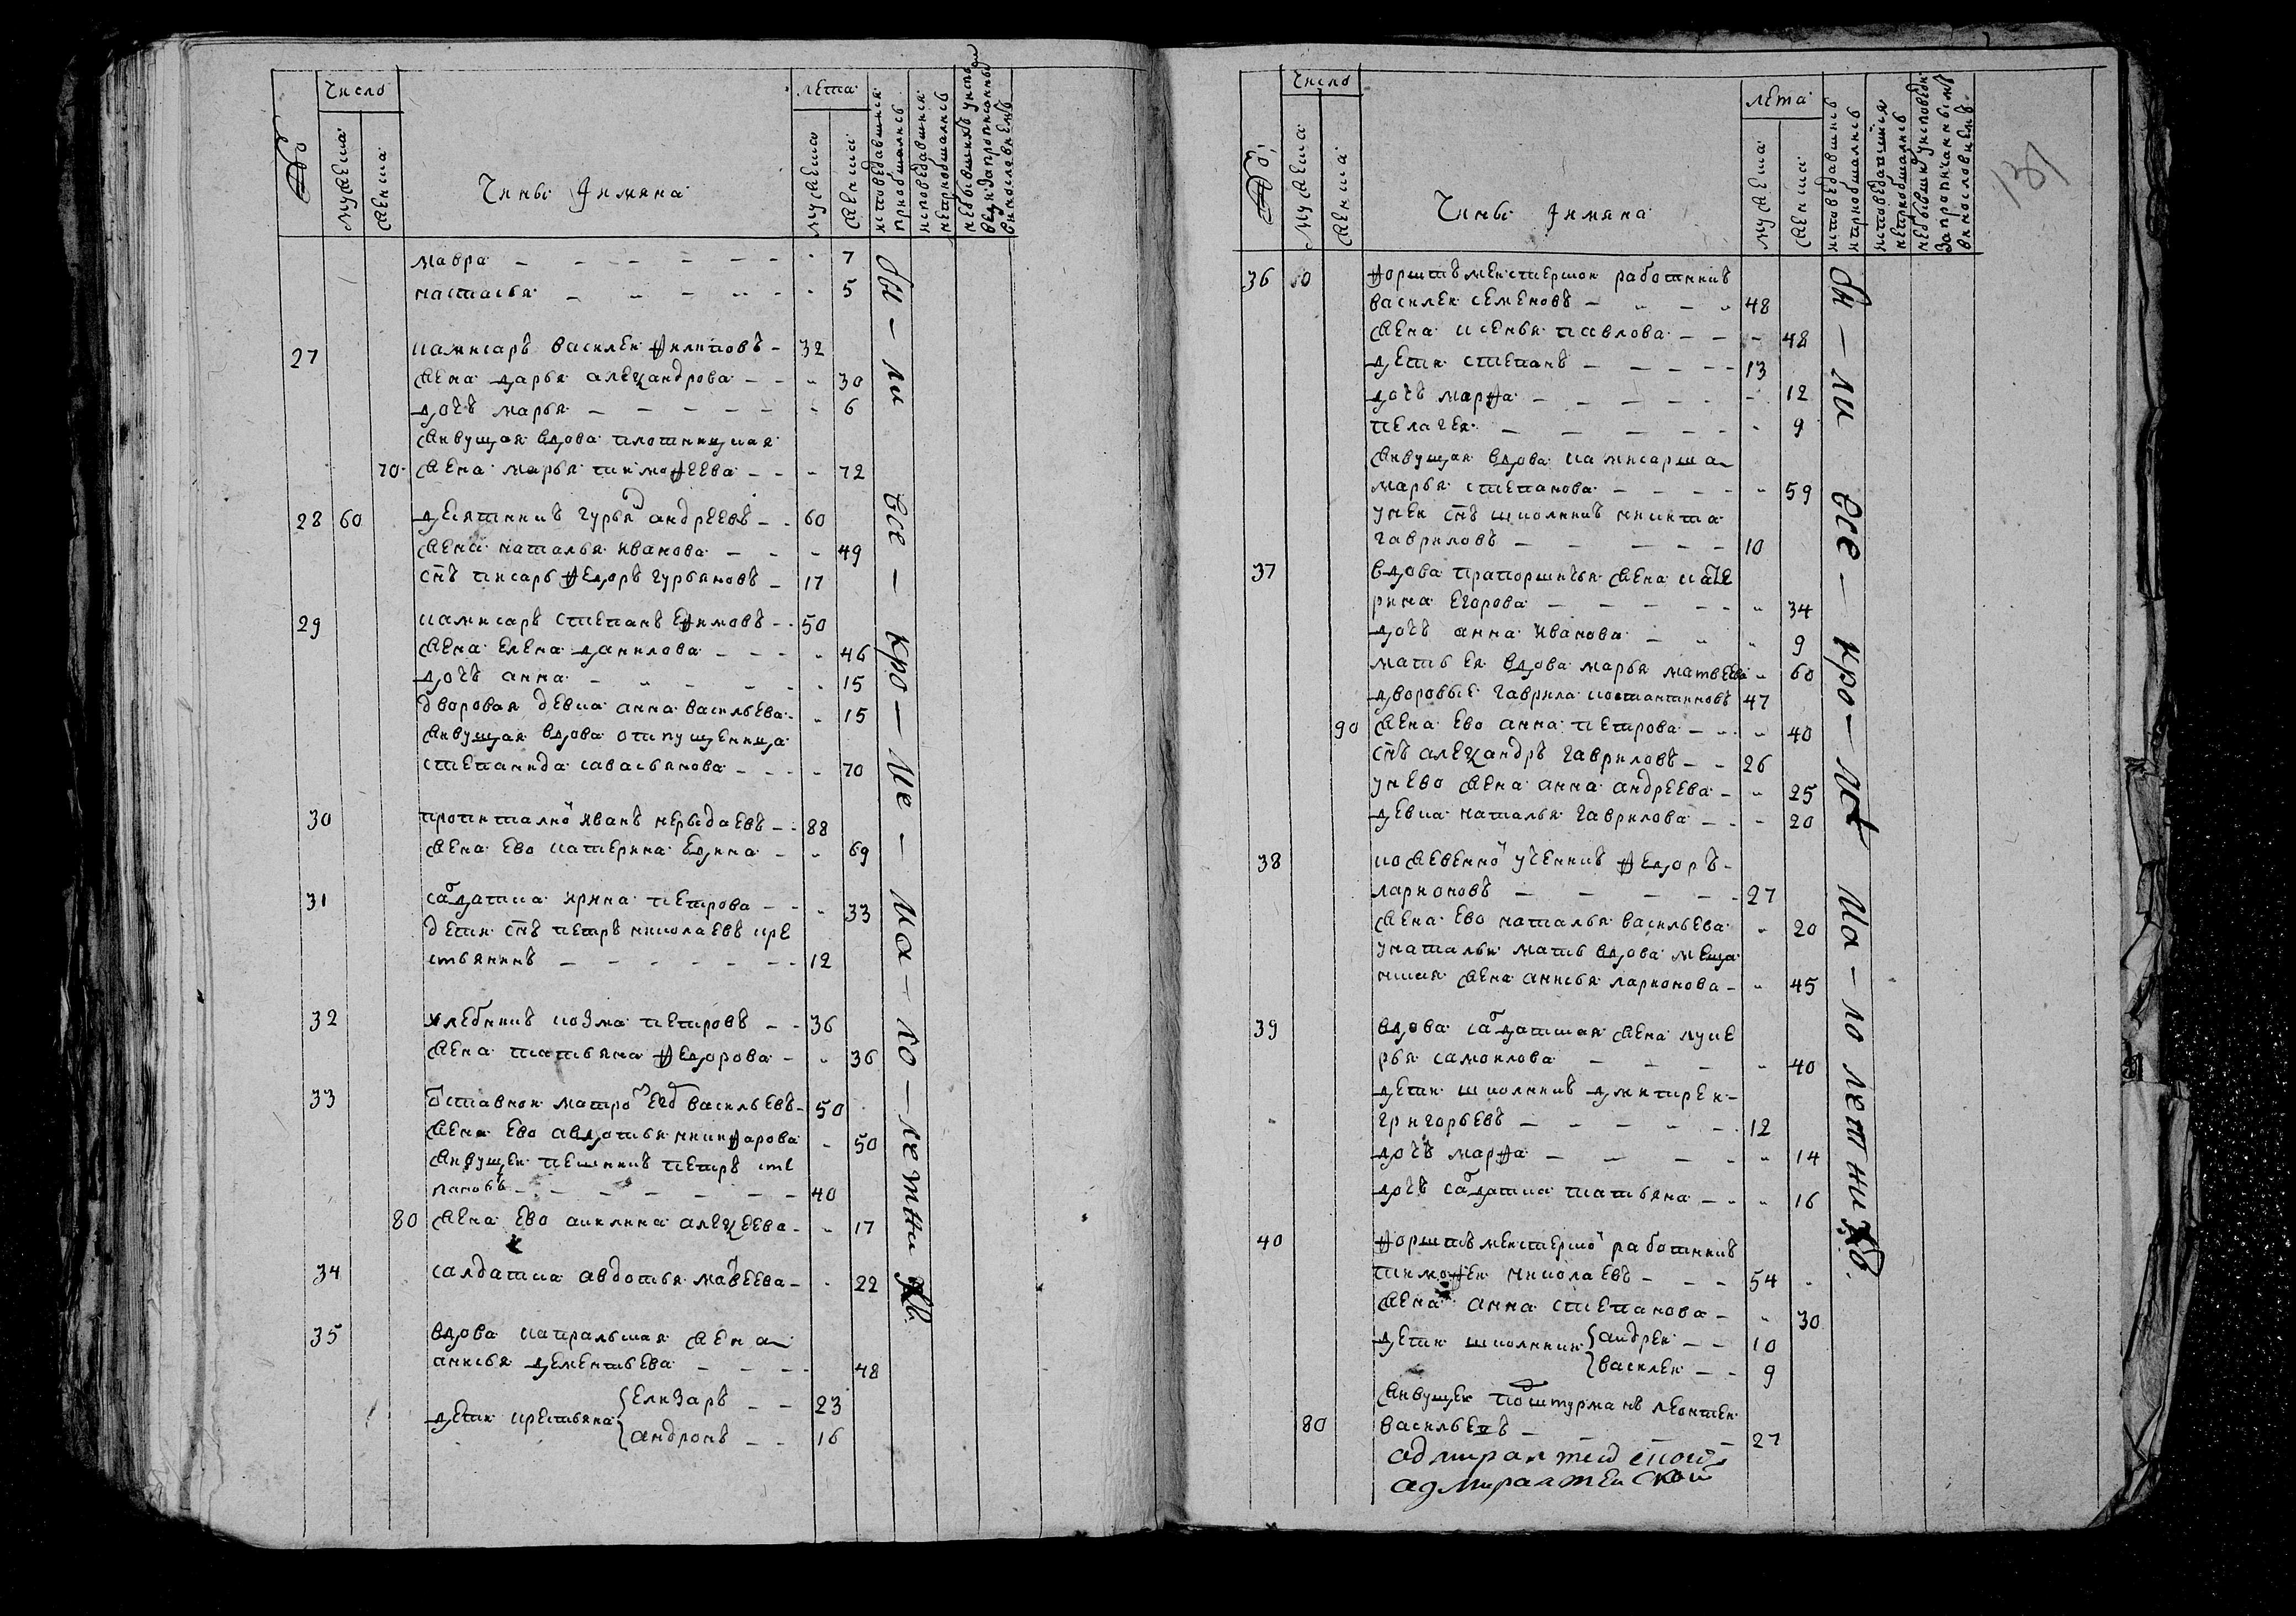 число
лета
мужеска
женска
чины и имяна
мужеска
женска
исповедавшияся
приобщались
исповедавшияся
неприобщались
мавра — 7
настасья — 5
27 камисаръ василеи филиповъ — 32
жена дарья алеѯандрова — 30
дочь марья — 6
живущая вдова плотницкая
70 жена марья тимофеева — 72
28 60 десятникъ гурья андреевъ — 60
жена наталья иванова — 49
снъ писарь федоръ гурьяновъ — 17
29 камисаръ степанъ ефимовъ — 50
жена елена данилова — 46
дочь анна — 15
дворовая девка анна васильева — 15
живущая вдова отпущенница
степанида савасьянова — 70
30 пропиталнои иванъ нерыдаевъ — 88
жена ево катерина — 69
31 салдатка ирина петрова — 33
дети снъ петръ николаевъ кре
стьянинъ — 12
32 хлебникъ козма петровъ — 36
жена татьяна федорова — 36
33 оставнои матроз егоръ васильевъ — 50
жена ево авдотья никифорова — 50
живущеи пешникъ петръ сте
пановъ — 40
80 жена ево акилина алеѯеева — 17
34 салдатка авдотья мавеева — 22
35 вдова капральшая жена
анисья дементьева — 48
дети крестьяна {елизаръ — 23
{андронъ — 16
бы – ли все – кро – ме – ма – ло – летни хъ
число
лета
131
мужеска
женска
чины и имяна
мужеска
женска
исповедавшись
и приобщались
исповедавшияся
неприобщались
36 80 форштъмеистерскои работникъ
василеи семеновъ — 48
жена ксенья павлова — 48
дети степанъ — 13
дочь марфа — 12
пелагея — 9
живущая вдова камисарша
марья степанова — 59
у неи снъ школникъ никита
гавриловъ — 10
37 вдова прапорщичья жена кате
рина егорова — 34
дочь анна иванова — 9
мать ея вдова марья матвеева — 60
дворовые гаврила костантиновъ 47
90 жена ево анна петрова — 40
снъ алеѯандръ гавриловъ — 26
у нево жена анна андреева — 25
девка наталья гаврилова — 20
38 кожевеннои ученикъ федоръ
ларионовъ — 27
жена ево наталья васильева 20
у натальи мать вдова меща
нская жена анисья ларионова — 45
39 вдова салдатская жена луке
рья самоилова — 40
дети школникъ дмитреи
григорьевъ — 12
дочь марфа — 14
дочь салдатка татьяна — 16
40 форштъмеистерскои работникъ
тимофеи николаевъ — 54
жена анна степанова — 30
дети школники {андреи — 10
{василеи — 9
живущеи подштурманъ леонтеи
80 васильевъ — 27
адмиралтеискои
адмиралтеискои
бы – ли все – кро – ме ма – ло летнихъ.